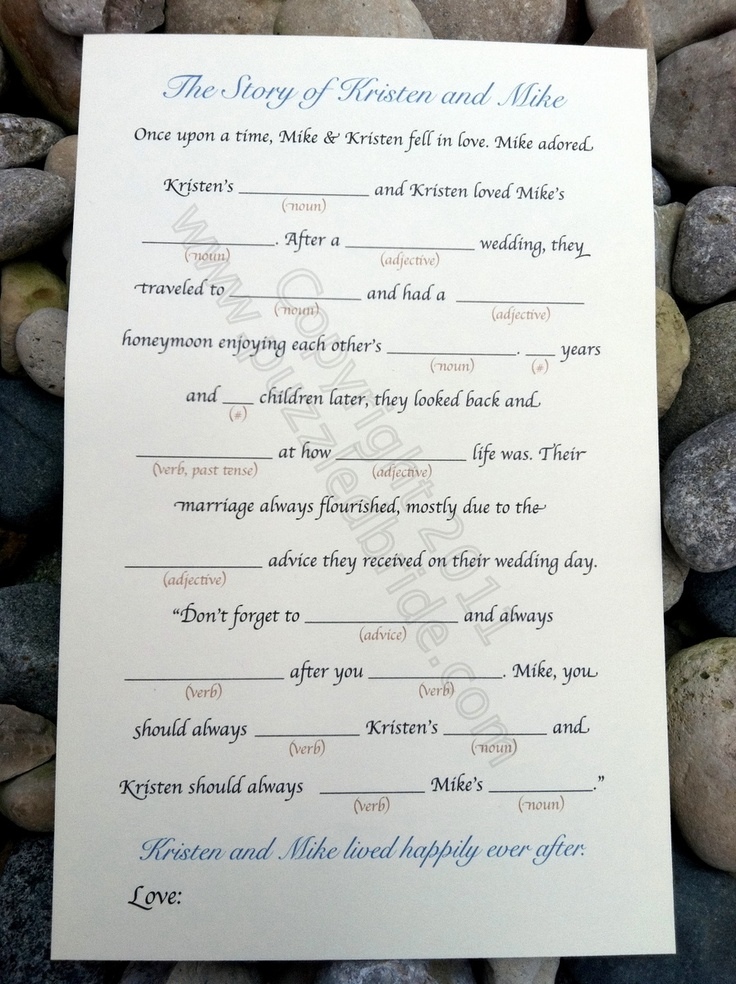 The Story of Kristen and Mike
Once upon a time, Mike & Kristen fell in love. Mike adored
Kristen's _____________ and Kristen loved Mike's
(noun)
_____________. After a _____________ wedding, they
(noun) (adjective)
traveled to _____________ and had a _____________
(noun) (adjective)
honeymoon enjoying each other's _____________. ___ years
(noun) (#)
and ___ children later, they looked back and
(#)
_____________ at how _____________ life was. Their
(verb, past tense) (adjective)
marriage always flourished, mostly due to the
_____________ advice they received on their wedding day.
(adjective)
“Don't forget to _______________ and always
(advice)
_______________ after you _____________. Mike, you
(verb) (verb)
should always __________ Kristen's __________ and
(verb) (noun)
Kristen should always __________ Mike's __________.”
(verb) (noun)
Kristen and Mike lived happily ever after.
Love:
Copyright 2011
www.puzzledbride.com